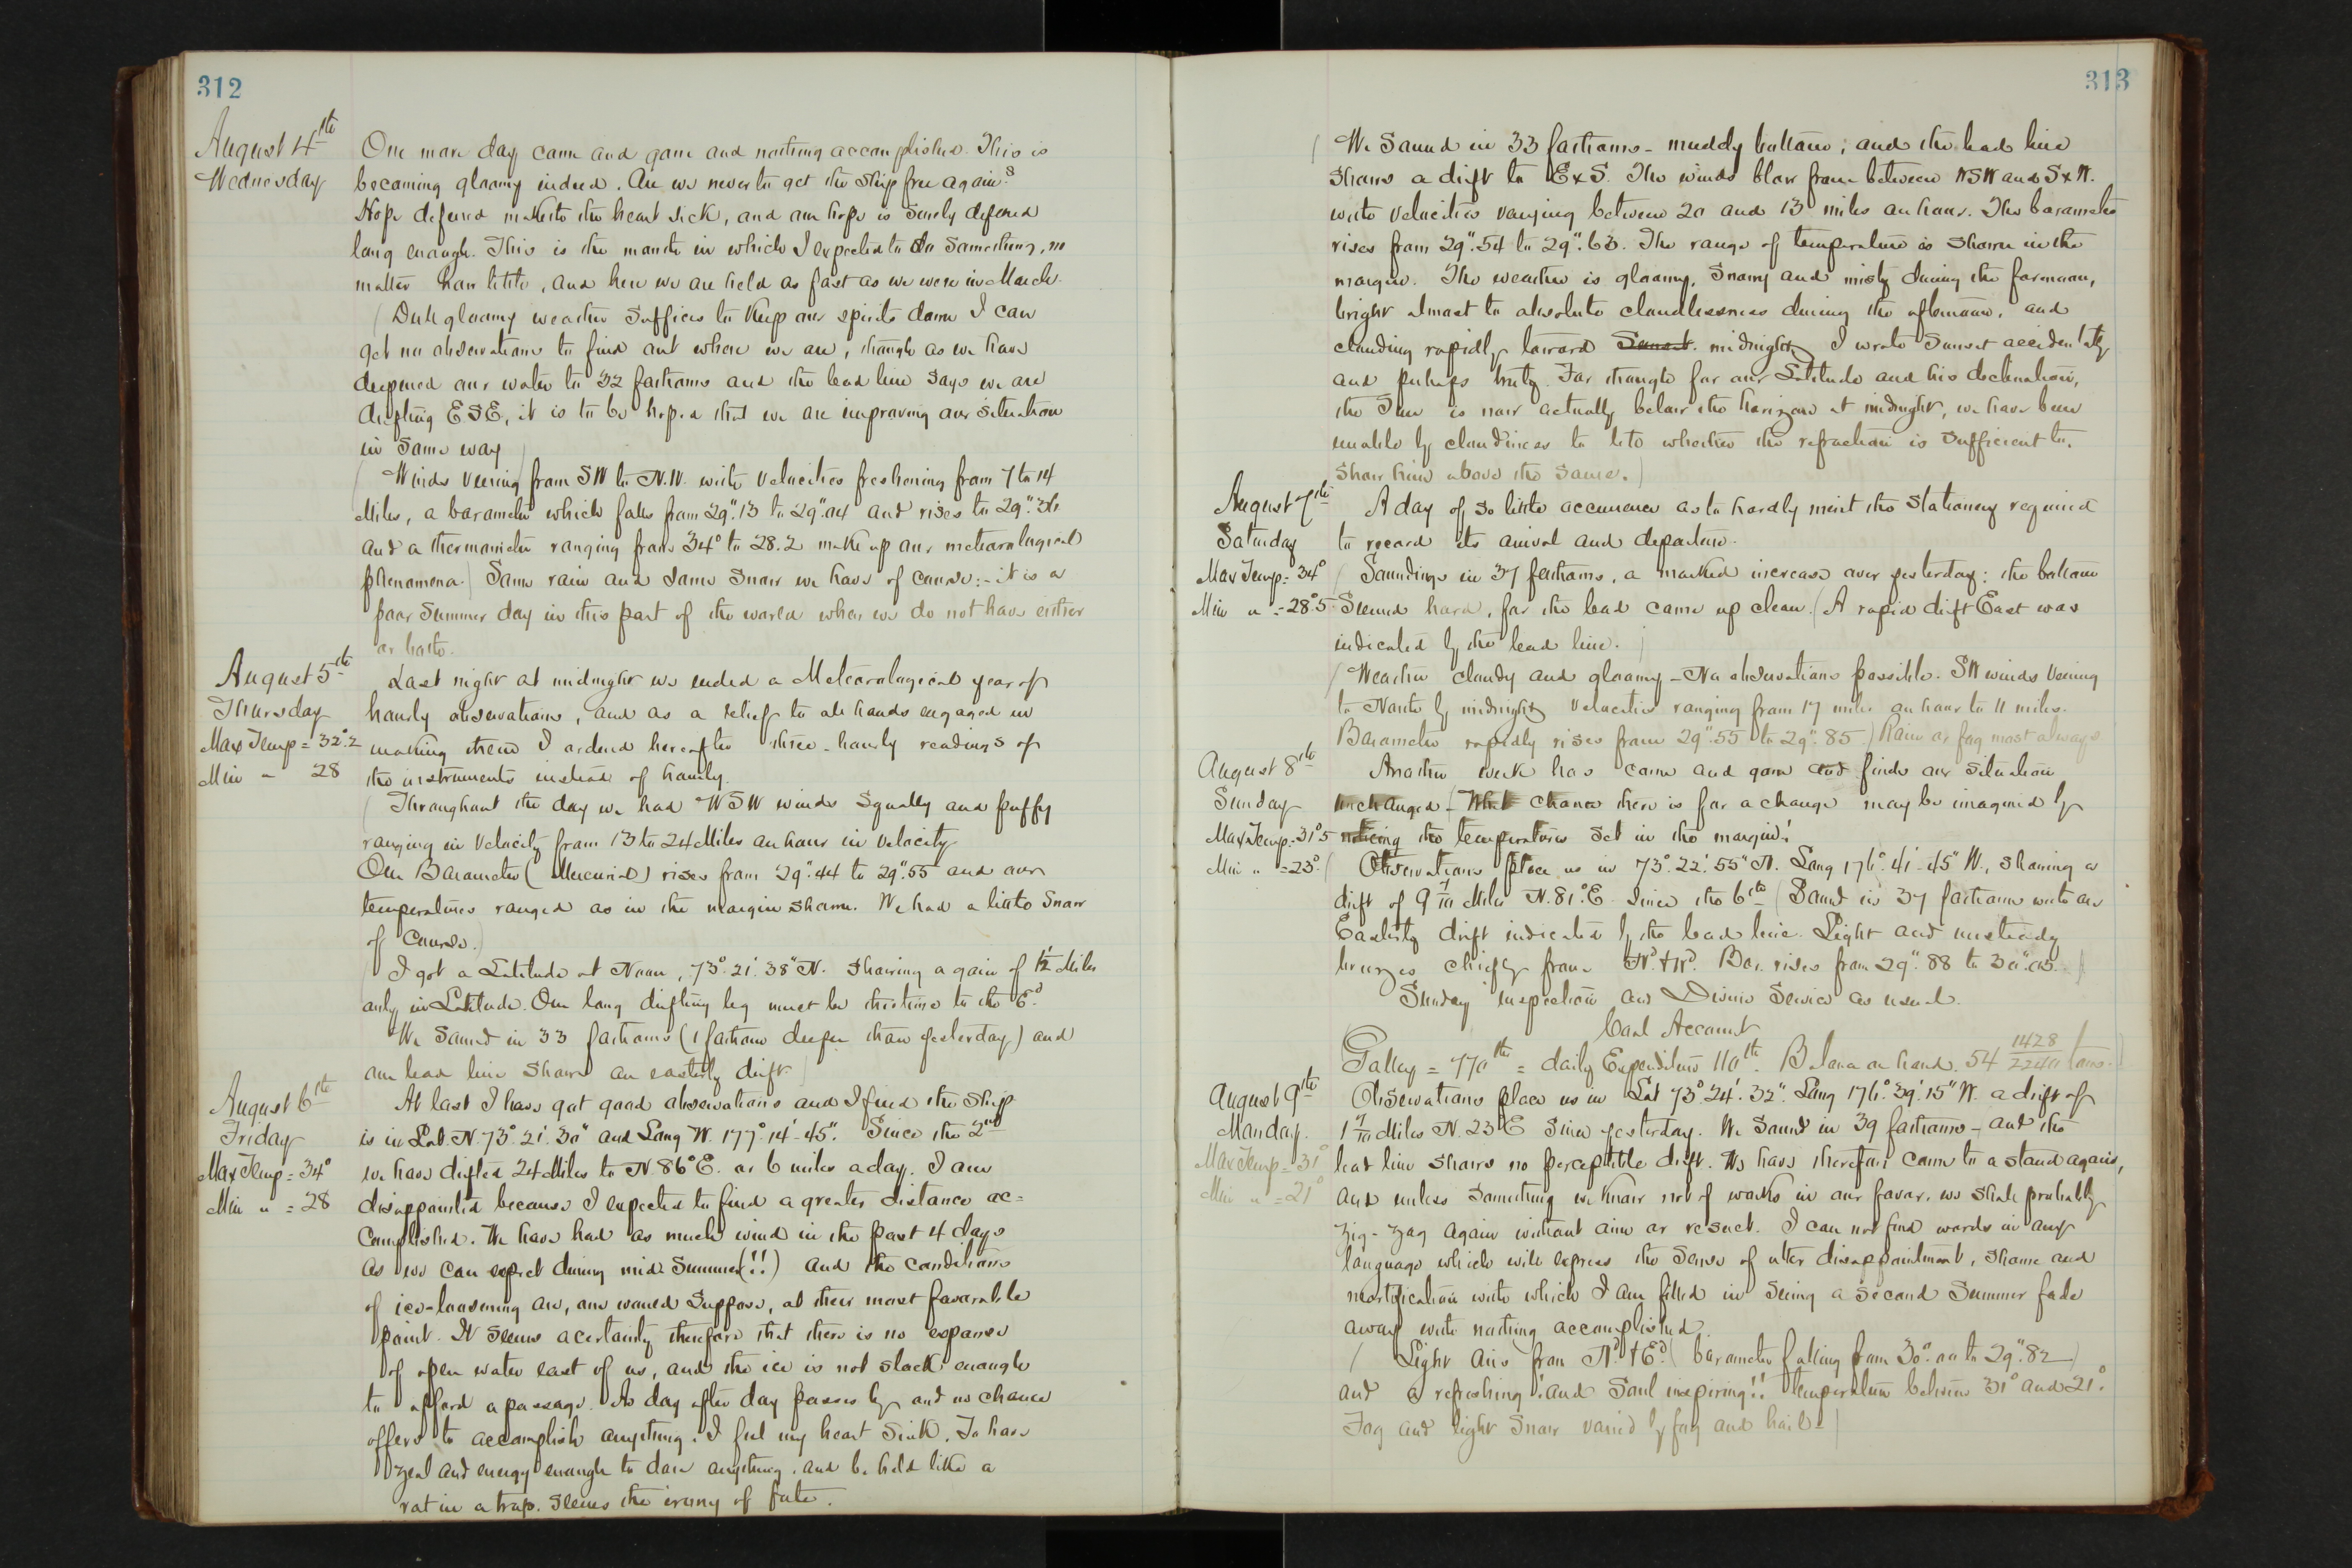 312
August 4th
Wednesday
One more day come and gone and nothing accomplished. This is
becoming gloomy indeed. Are we never to get the ship free again?
Hope deferred maketh the heart sick, and our hope is surely deferred
long enough. This is the month in which I expected to do something, no
matter how little, and here we are held as fast as we were in March.
(Dull gloomy weather suffices to keep our spirits down I can
get no observations to find out where we are, though as we have
deepened our water to 32 fathoms and the lead line says we are
drifting ESE, it is to be hoped that we are improving our situation
in some way)
(Winds veering from SW to N.W. with velocities freshening from 7 to 14
Miles, a barometer which falls from 29".13 to 29".04 and rises to 29".36
and a thermometer ranging from 34° to 28.2 make up our meteorological
phenomena.) Some rain and some snow we have of course:- it is a
poor summer day in this part of the world when we do not have either
or both.
August 5th
Thursday
Max Temp = 32°.2
Min " 28
Last night at midnight we ended a Meteorological year of
hourly observations, and as a relief to all hands engaged in
making them I ordered hereafter three-hourly readings of
the instruments instead of hourly.
(Throughout the day we had WSW winds squally and puffy
ranging in velocity from 13 to 24 Miles an hour in velocity
Our Barometer (Mercurial) rises from 29".44 to 29".55 and our
temperatures ranged as in the margin shown. We had a little snow
of course.)
(I got a Latitude at Noon, 73°.21'.38" N. showing a gain of 1½ Miles
only in Latitude. Our long drifting leg must be this time to the Ed
We sound in 33 fathoms (1 fathom deeper than yesterday) and
our lead line shows an easterly drift.)
August 6th
Friday
Max Temp = 34°
Min " = 28
At last I have got good observations and I find the ship
is in Lat. N. 73°.21'.30" and Long W. 177°.14'-45". Since the 2nd
we have drifted 24 Miles to N 86° E. or 6 miles a day. I am
disappointed because I expected to find a greater distance ac=
complished. We have had as much wind in the past 4 days
as we can expect during mid-summer (!!) and the conditions
of ice-loosening are, one would suppose, at their most favorable
point. It seems a certainty therefore that there is no expanse
of open water east of us, and the ice is not slack enough
to afford a passage. As day after day passes by and no chance
offers to accomplish anything, I feel my heart sink. To have
zeal and energy enough to dare anything, and be held like a
rat in a trap, seems the irony of fate.
313
(We sound in 33 fathoms - muddy bottom; and the lead line
shows a drift to ExS. The winds blow from between WSW and SxW.
with velocities varying between 20 and 13 miles an hour. The barometer
rises from 29".54 to 29".63. The range of temperature is shown in the
margin. The weather is gloomy, snowy and misty during the forenoon,
bright almost to absolute cloudlessness during the afternoon, and
clouding rapidly toward Sunset. midnight. I wrote Sunset accidentally
and perhaps truly. For though for our Latitude and his declination,
the Sun is now actually below the horizon at midnight, we have been
unable by cloudiness to tell whether the refraction is sufficient to.
show him above the same.)
August 7th
Saturday
Max Temp = 34°
Min " = 28°.5
A day of so little occurrence as to hardly merit the stationery required
to record its arrival and departure.
(Soundings in 37 fathoms, a marked increase over yesterday: the bottom
seemed hard, for the lead came up clean. (A rapid drift East was
indicated by the lead line.)
(Weather cloudy and gloomy - No observations possible. SW winds veering
to North by midnight velocities ranging from 17 miles an hour to 11 miles.
Barometer rapidly rises from 29".55 to 29".85) Rain or fog most always
August 8th
Sunday
Max Temp. 31°5
Min " = 23°
Another week has come and gone and finds our situation
unchanged - (What chance there is for a change may be imagined by
noticing the temperatures set in the margin!
(Observations place us in 73°.22'.55" N. Long 176°.41'-45" W., showing a
drift of 9 1/10 Miles N.81°.E since the 6th (Sound in 37 fathoms with an
Easterly drift indicated by the lead line. Light and unsteady
breezes chiefly from Nd & Wd. Bar. rises from 29".88 to 30".05.)
Sunday inspection and Divine Service as usual.
Coal Account
Galley = 770 lbs = daily Expenditure 110 lbs. Balance on hand. 54 1428/2240 tons.
August 9th
Monday.
Max Temp = 31°
Min " = 21°
Observations place us in Lat 73°.24'.32". Long 176°.39'.15" W. a drift of
1 7/10 Miles N.23 E since yesterday. We sound in 39 fathoms - and the
lead line shows no perceptible drift. We have therefore come to a stand again,
and unless something we know not of works in our favor, we shall probably
zig-zag again without aim or result. I can not find words in any
language which will express the sense of utter disappointment, shame and
mortification with which I am filled in seeing a second Summer fade
away with nothing accomplished.
(Light airs from Nd & Ed (barometer falling from 30".00 to 29".82)
and a refreshing! and Soul inspiring!! temperature between 31° and 21°.
Fog and light snow varied by fog and hail-)